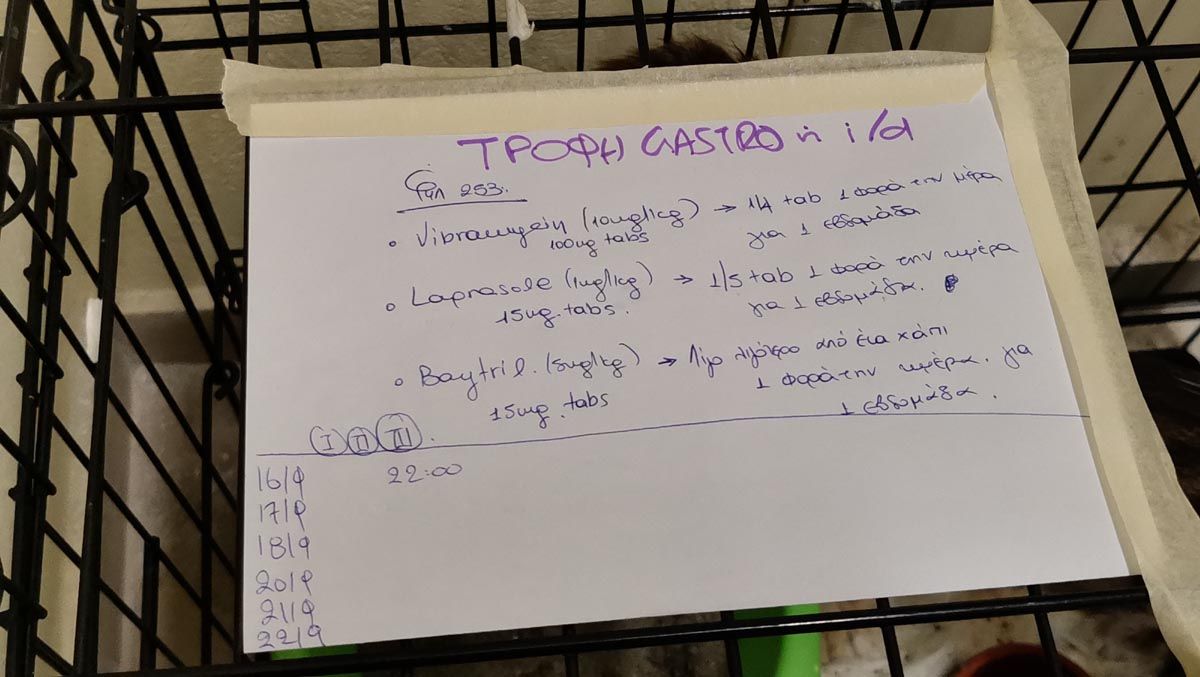 ΤΡΟΦΗ GASTRO ή i/d
253.
• Vibramycin (10mg/kg) → 1/4 tab 1 φορά την μέρα
100mg tabs για 1 εβδομάδα
• Laprasole (1mg/kg) → 1/5 tab 1 φορά την ημέρα
15mg tabs. για 1 εβδομάδα.
• Baytril. (5mg/kg) → Λίγο λιγότερο από ένα χάπι
15mg. tabs 1 φορά την ημέρα. για
1 εβδομάδα.
I II III.
16/9 22:00
17/9
18/9
20/9
21/9
22/9